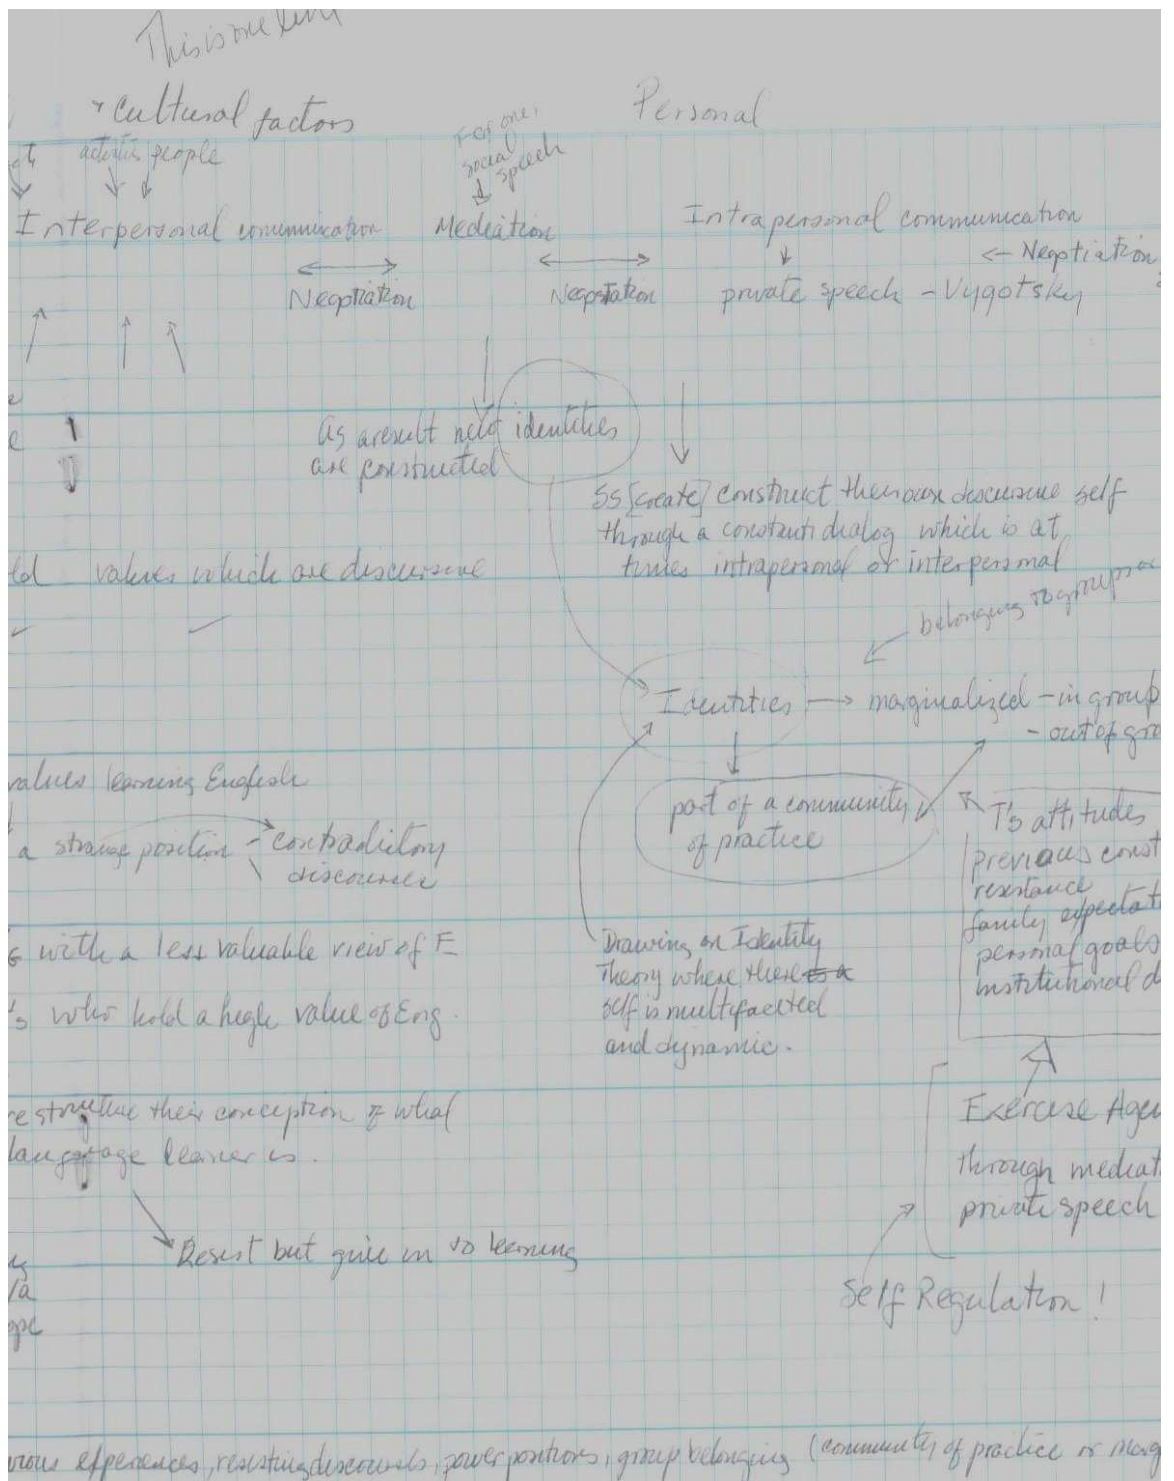 This is one
* Cultural factors
Personal
activities people
For one,
social
speech
Interpersonal communication
Mediation
Intrapersonal communication
Negotiation
Negotiation
Negotiation
private speech – Vygotsky
As a result new identities
are constructed
Ss [create] construct their own discursive self
through a constant dialog which is at
times intrapersonal or interpersonal
values which are discursive
belonging to groups
Identities → marginalized – in group
– out of gro
values learning English
a strange position – contradictory
discourses
part of a community
of practice
T's attitudes
previous const
resistance
family expectati
personal goals
institutional d
with a less valuable view of E
's who hold a high value of Eng.
Drawing on Identity
Theory where there is a
self is multifaceted
and dynamic.
restructure their conception of what
language learner is.
Exercise Agen
through mediat
private speech
Resist but give in to learning
Self Regulation!
experiences, resisting discourses, power positions, group belonging (community of practice or marg